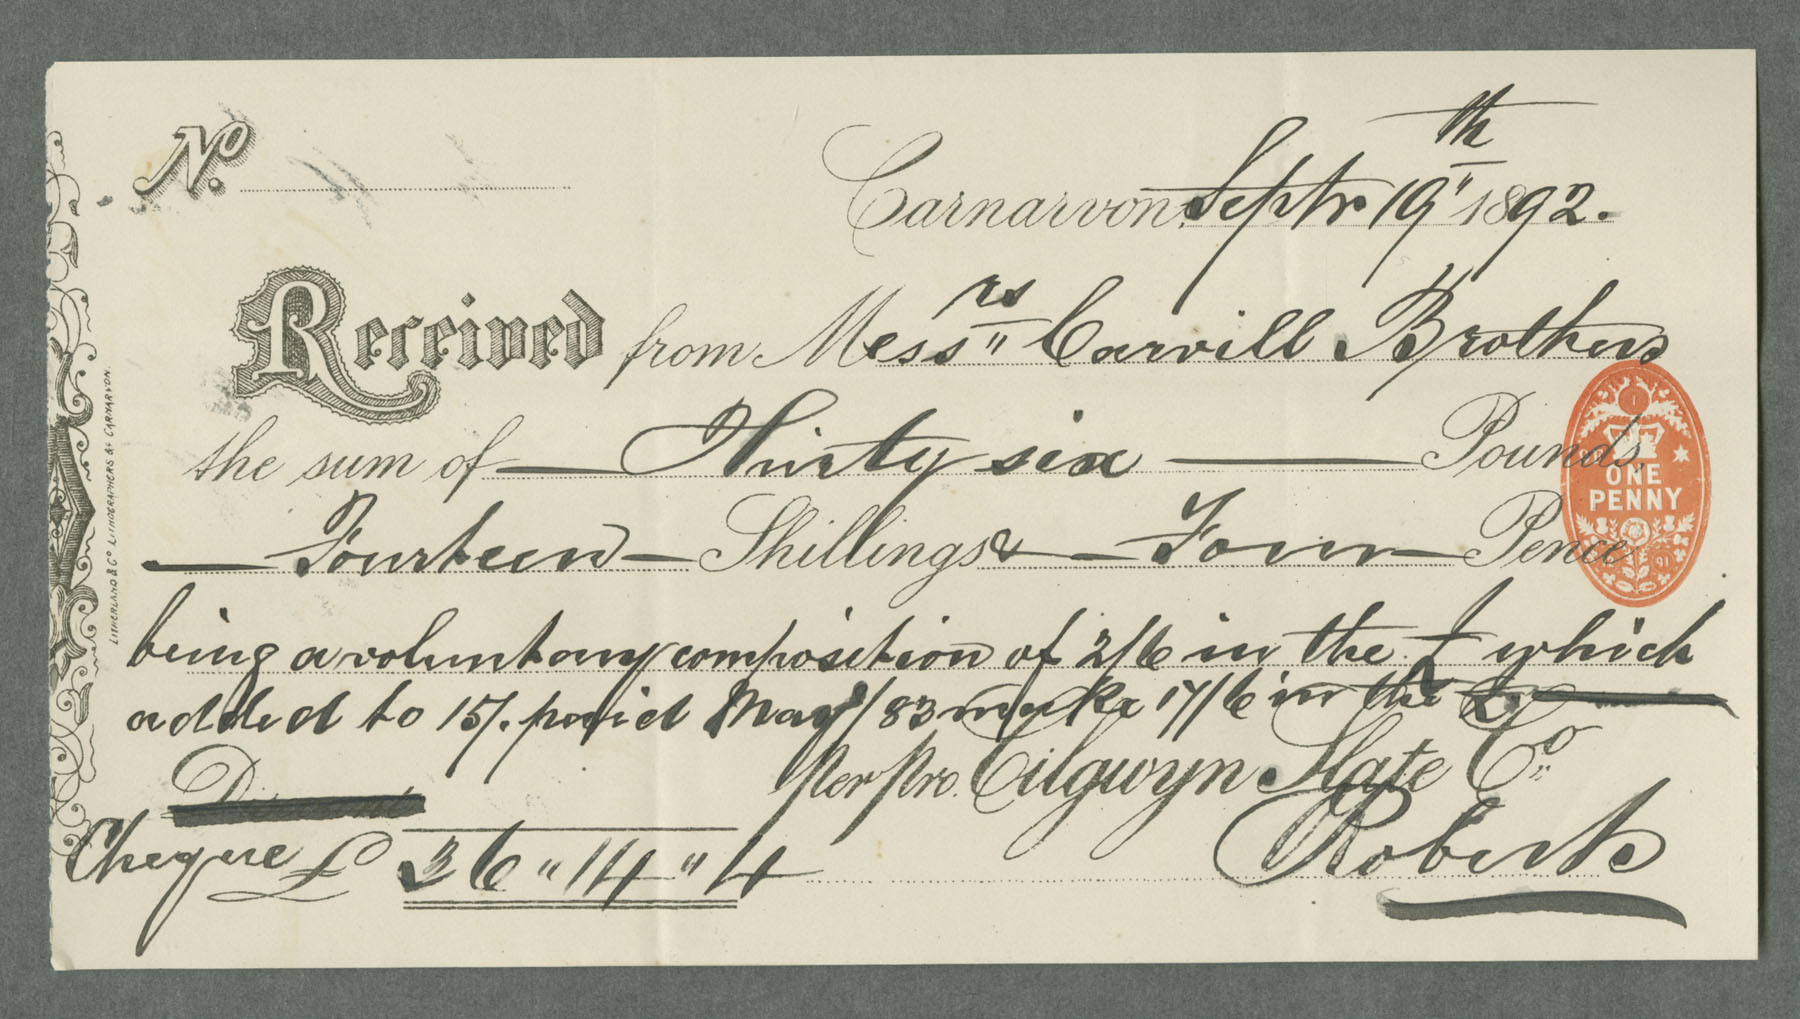 No.
Carnarvon, Septr. 19th 1892.
Received from Messrs Carvill Brothers
the sum of Thirty six Pounds,
Fourteen Shillings & Four Pence
ONE
PENNY
being a voluntary composition of 2/6 in the £ which
added to 15/. paid May/83 make 17/6 in the £.
per pro. Cilgwyn Slate Co.
Cheque £ 36 " 14 " 4
Roberts
LITHERLAND & Co LITHOGRAPHERS &c CARNARVON.